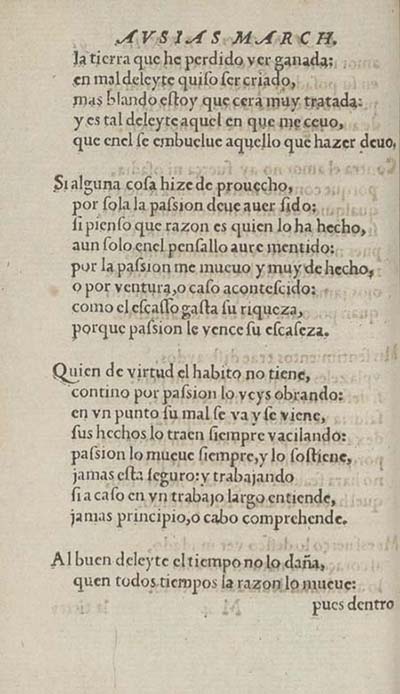 AVSIAS MARCH.
la tierra que he perdido ver ganada:
en mal deleyte quiso ser criado,
mas blando estoy que cera muy tratada:
y es tal deleyte aquel en que me ceuo,
que enel se embuelue aquello que hazer deuo,
Si alguna cosa hize de prouecho,
por sola la passion deue auer sido:
si pienso que razon es quien lo ha hecho,
aun solo enel pensallo aure mentido:
por la passion me mueuo y muy de hecho,
o por ventura, o caso acontescido:
como el escasso gasta su riqueza,
porque passion le vence su escaseza.
Quien de virtud el habito no tiene,
contino por passion lo veys obrando:
en vn punto su mal se va y se viene,
sus hechos lo traen siempre vacilando:
passion lo mueue siempre, y lo sostiene,
jamas esta seguro: y trabajando
si a caso en vn trabajo largo entiende,
jamas principio, o cabo comprehende.
Al buen deleyte el tiempo no lo daña,
quen todos tiempos la razon lo mueue:
pues dentro